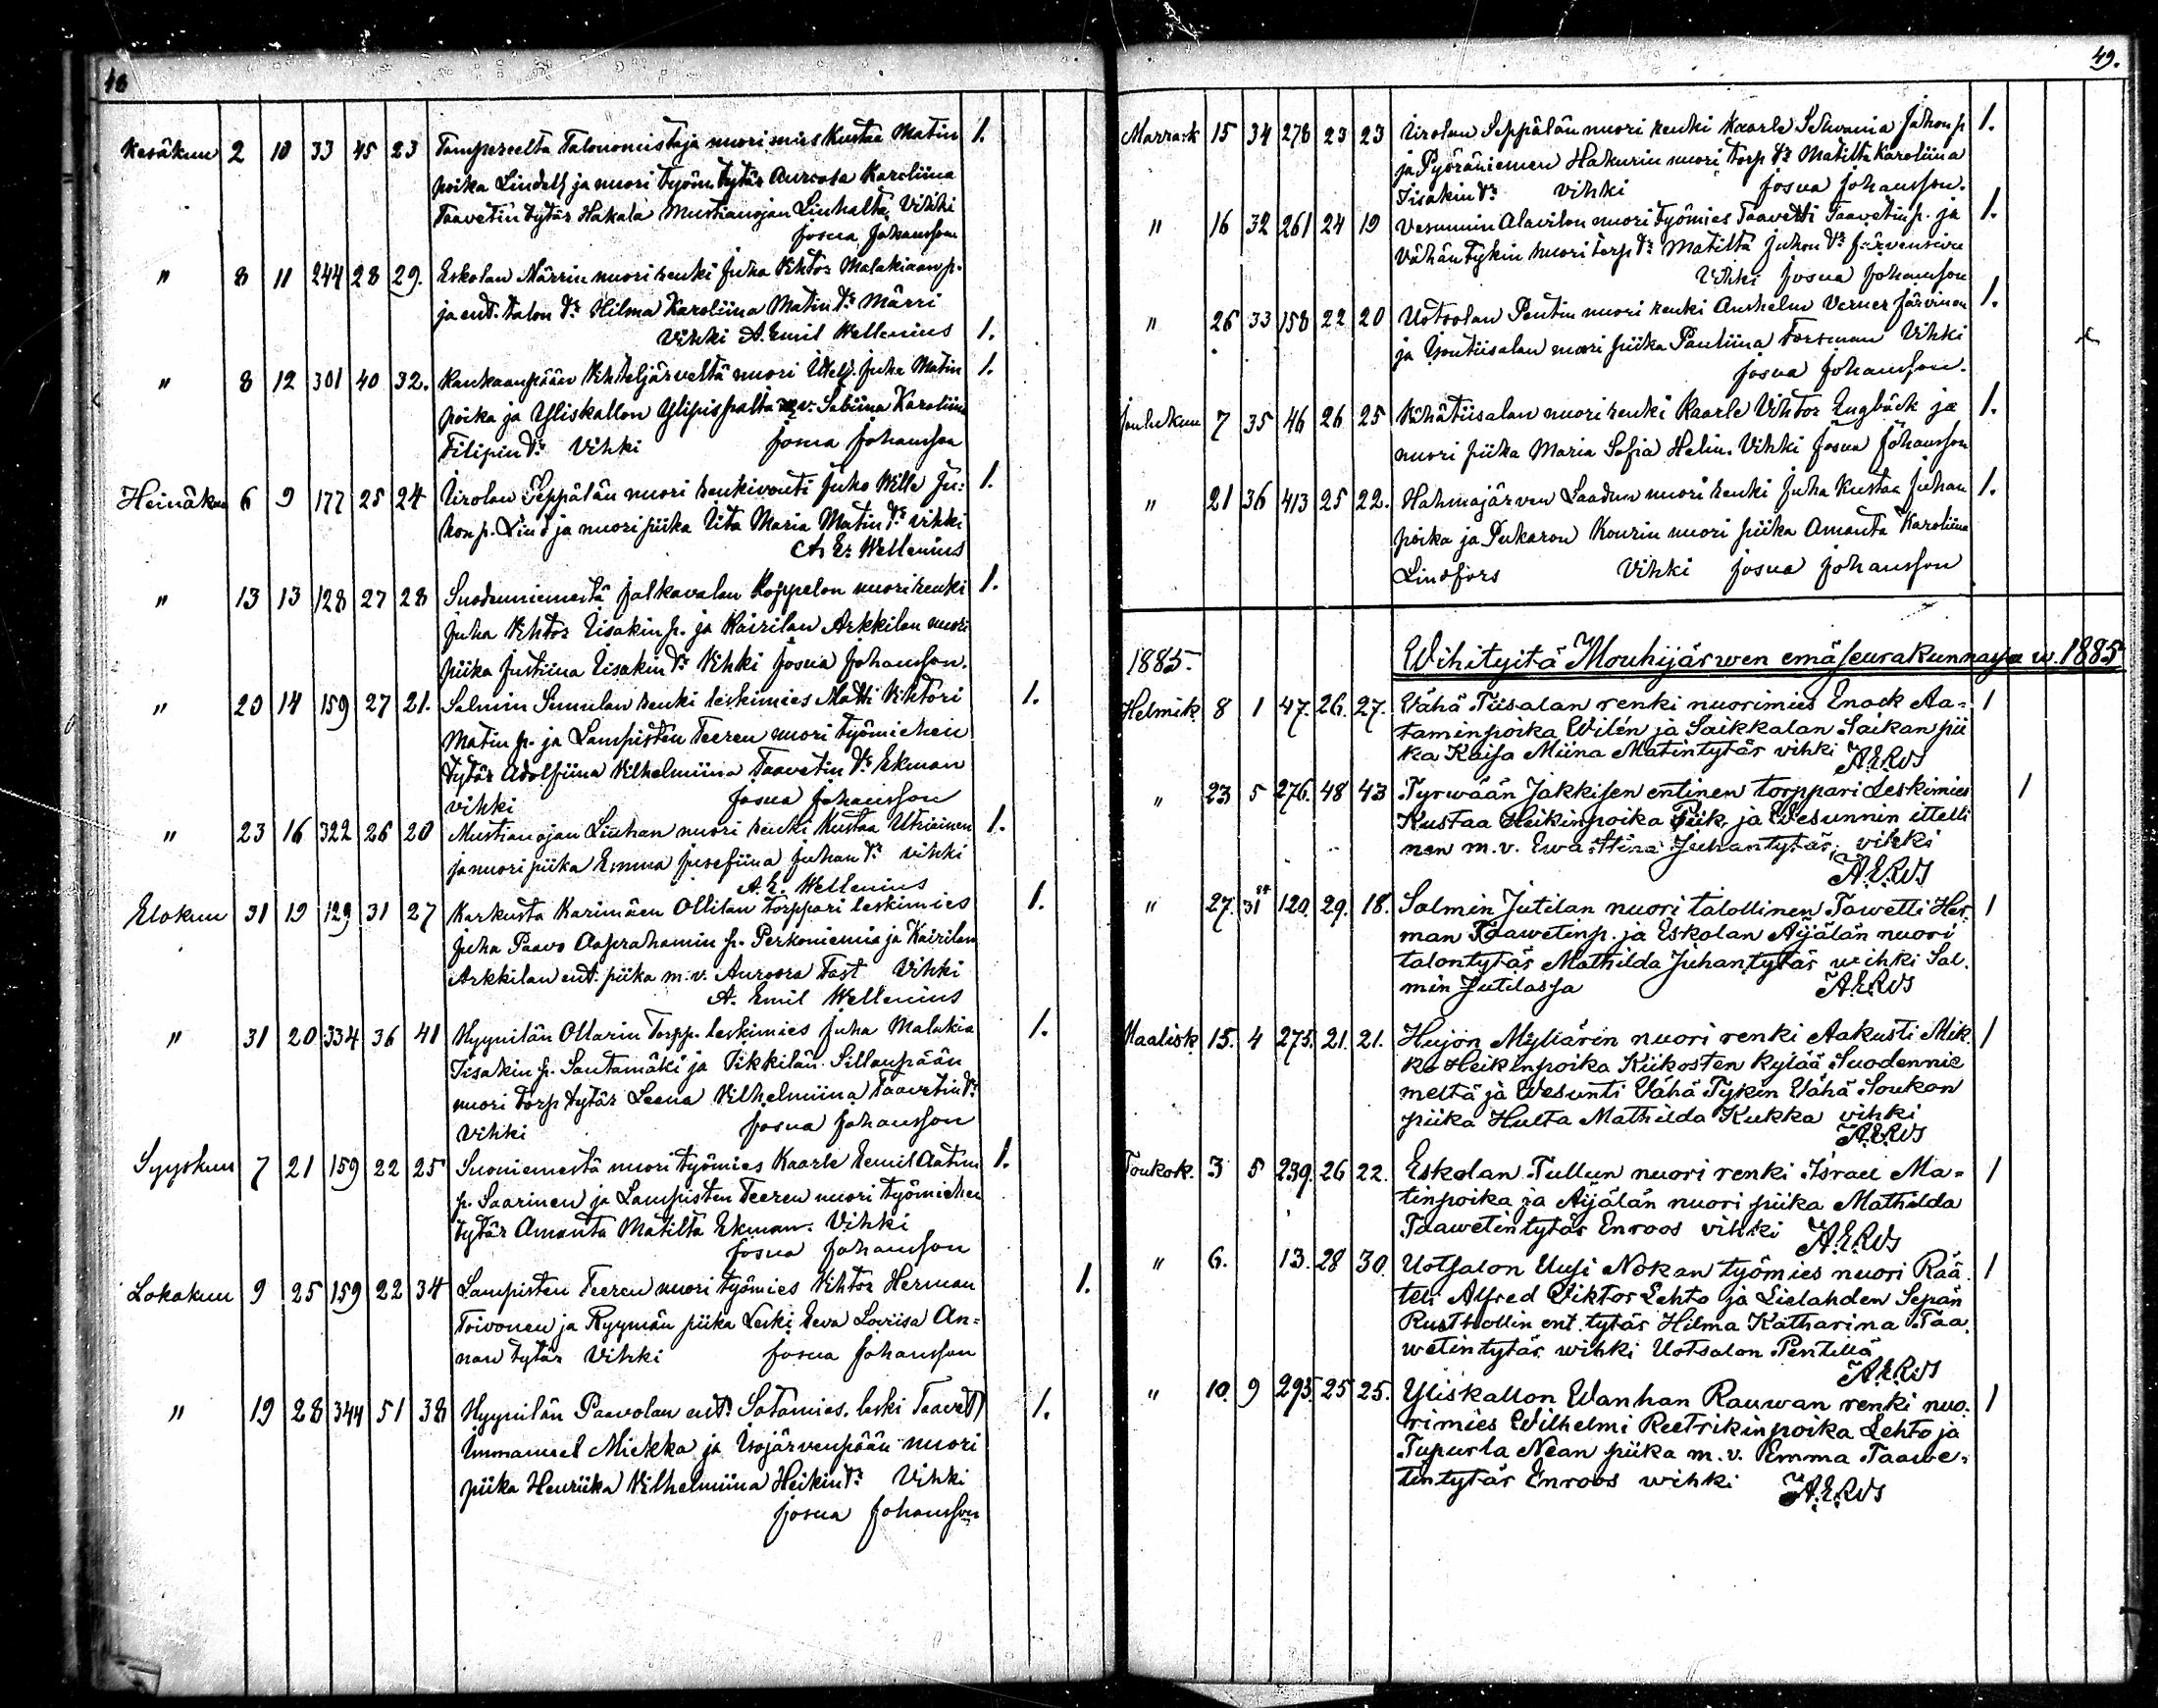 48
Kesäkuu 2 10 33 45 23 Tampereelta Talonomistaja nuorimies Kustaa Matin 1.
poika Lindell ja nuori työm. tytär Auroora Karoliina
Taavetin tytär Hakala Mustianojan Liuhalta, Vihki
Josua Johansson
" 8 11 244 28 29. Eskolan Närrin nuori renki Juha Vihtor Malakiaan p.
ja ent. talon tr Hilma Karoliina Matin tr Märri
Vihki A. Emil Wellenius 1.
" 8 12 301 40 32. Kankaanpään Vihteljärveltä nuori Itell. Juha Matin 1.
poika ja Yliskallon Ylipispalta m. v. Sabiina Karoliina
Filipin tr Vihki Josua Johansson
Heinäkuu 6 9 177 25 24 Urolan Seppälän nuori renkivouti Juho Wille Ju= 1.
hon p. Lind ja nuori piika Iita Maria Matin tr vihki
A. E. Wellenius
" 13 13 128 27 28 Suodenniemestä Jalkavalan Koppelon nuori renki 1.
Juha Vihtor Iisakin p. ja Kairilan Arkkilan nuori
piika Justiina Iisakin tr Vihki Josua Johansson.
" 20 14 159 27 21. Salmin Simulan renki leskimies Matti Vihtori 1.
Matin p. ja Lampisten Teeren nuori työmiehen
tytär Adolfiina Vilhelmiina Taavetin tr Ekman
vihki Josua Johansson
" 23 16 322 26 20 Mustianojan Liuhan nuori renki Kustaa Utriainen 1.
ja nuori piika Emma Josefiina Juhan tr vihki
A. E. Wellenius
Elokuu 31 19 129 31 27 Karkusta Karimäen Ollilan torppari leskimies 1.
Juha Paavo Aaprahamin p. Perkoniemia ja Kairilan
Arkkilan ent. piika m. v. Auroora Fast Vihki
A. Emil Wellenius
" 31 20 334 36 41 Hyynilän Ollarin Torpp. leskimies Juha Malakia 1.
Iisakin p. Santamäki ja Tikkilän Sillanpään
nuori torp tytär Leena Vilhelmiina Taavetin tr
Vihki Josua Johansson
Syyskuu 7 21 159 22 25 Suoniemestä nuori työmies Kaarle Eemil Aatim 1.
p. Saarinen ja Lampisten Teeren nuori työmiehen
tytär Amanta Matilta Ekman. Vihki
Josua Johansson
Lokakuu 9 25 159 22 34 Lampisten Teeren nuori työmies Vihtor Herman 1.
Toivonen ja Ryymän piika Leski Eeva Loviisa An=
nan tytär Vihki Josua Johansson
" 19 28 344 51 38 Hyynilän Paavolan ent. Sotamies. leski Taavetti 1.
Immanuel Miekka ja Isojärvenpään nuori
piika Henriika Vilhelmiina Heikin tr Vihki
Josua Johansson
49.
Marrask 15 34 278 23 23 Urolan Seppälän nuori renki Kaarle Juhon p 1.
ja Pyöräniemen Hakurin nuori torp tr Matilta Karoliina
Iisakin tr vihki Josua Johansson.
" 16 32 261 24 19 Vesunnin Alavilon nuori työmies Taavetti Taavetin p. ja 1.
Vähän Tykin nuori torp tr Matilta Juhon tr Järvensivu
Vihki Josua Johansson
" 26 33 158 22 20 Uotsolan Pentin nuori renki Anshelm Verner Järvinen 1.
ja Isontiisalan nuori piika Pauliina Forsman Vihki
Josua Johansson.
Joulukuu 7 35 46 26 25 Vähätiisalan nuori renki Kaarle Vihtor Engbäck ja 1.
nuori piika Maria Sofia Helin. Vihki Josua Johansson
" 21 36 413 25 22. Hahmajärven Laadun nuori renki Juha Kustaa Juhan 1.
poika ja Pukaron Kourin nuori piika Amanta Karoliina
Lindfors Vihki Josua Johansson
1885. Wihityitä Mouhijärwen emäseurakunnassa w. 1885
Helmik. 8 1 47. 26. 27. Vähä Tiisalan renki nuorimies Enock Aa= 1
taminpoika Wilén ja Saikkalan Saikan pii
ka Kaisa Miina Matintytär vihki A.E.R.W.S
" 23 5 276. 48 43 Tyrwään Jakkisen entinen torppari Leskimies 1
Kustaa Heikinpoika Piik. ja Wesunnin ittelli
nen m. v. Ewa Stina Juhantytär, vihki
A.E.R.W.S
" 27. 31 120. 29. 18. Salmin Jutilan nuori talollinen Tawetti Her= 1
man Taawetinp. ja Eskolan Äijälän nuori
talontytär Mathilda Juhantytär wihki Sal.
min Jutilassa A.E.R.W.S
Maalisk. 15. 4 275. 21. 21. Hujon Myllärin nuori renki Aakusti Mik. 1
ko Heikinpoika Kiikosten kylää Suodennie
meltä ja Wesunti Vähä Tykin Vähä Soukon
piika Hulta Mathilda Kukka vihki
A.E.R.W.S
Toukok. 3 5 239. 26 22. Eskolan Tullun nuori renki Israel Ma= 1
tinpoika ja Äijälän nuori piika Mathilda
Taawetintytär Enroos vihki A.E.R.W.S
" 6. 13. 28 30. Uotsalon Uusi Nokan työmies nuori Rää= 1
teli Alfred Viktor Lehto ja Lielahden Sepän
Rusthollin ent. tytär Hilma Katharina Taa.
wetintytär wihki Uotsalon Pentillä
A.E.R.W.S
" 10. 9 293. 25 25. Yliskallon Wanhan Rauwan renki nuo. 1
rimies Wilhelmi Reetrikinpoika Lehto ja
Tupurla Nean piika m. v. Emma Taawe=
tintytär Enroos wihki A.E.R.W.S